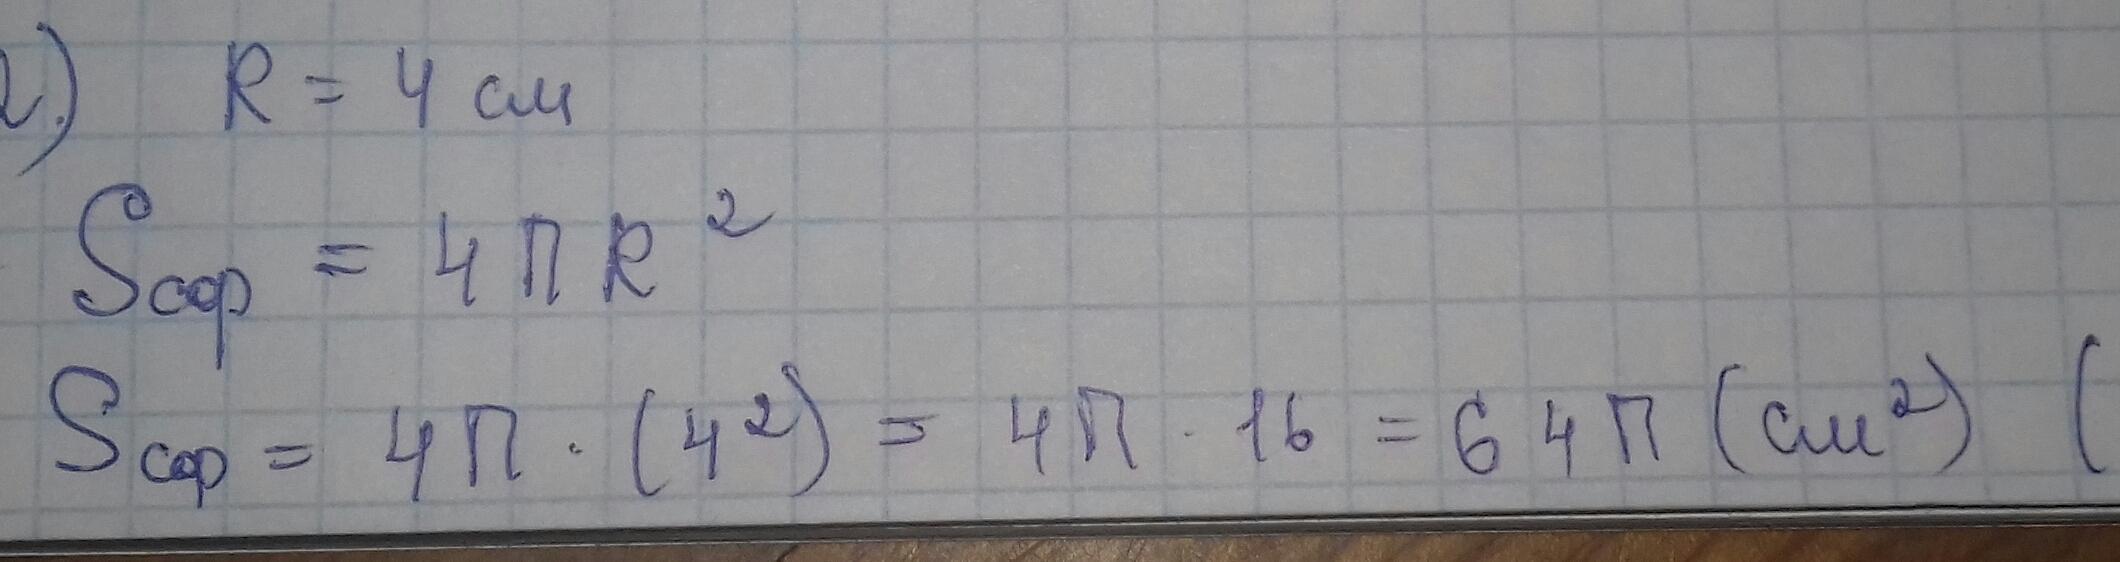 2.) R = 4 см
Sсф = 4ПR²
Sсф = 4П · (4²) = 4П · 16 = 64П (см²) (